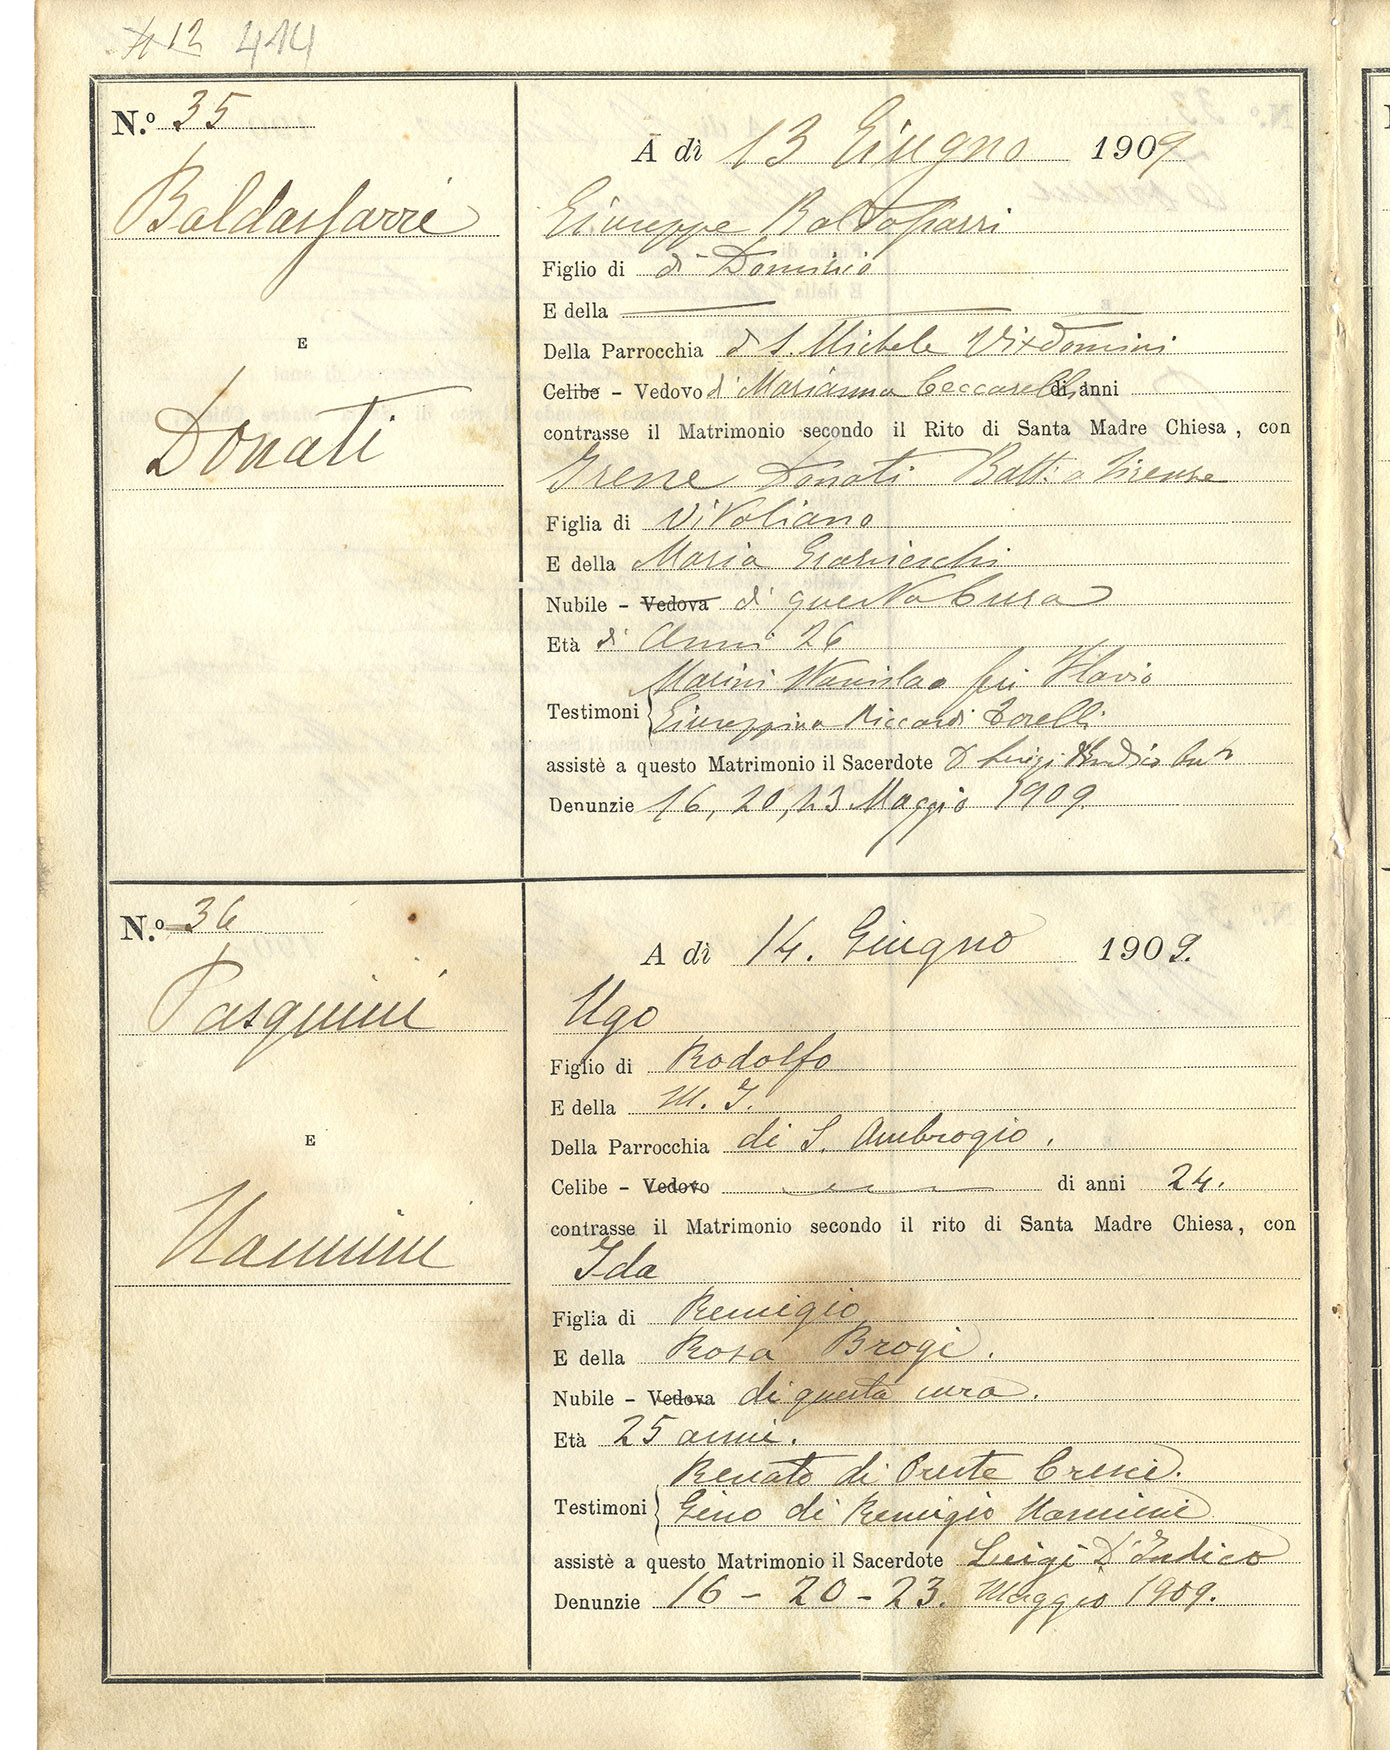 412 414
N.º 35
Baldassarri
E
Donati
A dì 13 Giugno 1909
Giuseppe Baldassarri
Figlio di di Domenico
E della
Della Parrocchia di S. Michele Visdomini
Celibe - Vedovo di Marianna Ceccarelli di anni
contrasse il Matrimonio secondo il Rito di Santa Madre Chiesa, con
Irene Donati Batt. a Firenze
Figlia di Vivoliano
E della Maria
Nubile - Vedova di questa Cura
Età di Anni 26
Marini Stanislao fu Flavio
Testimoni Giuseppina Riccardi Torelli
assistè a questo Matrimonio il Sacerdote D Luigi
Denunzie 16, 20, 23 Maggio 1909.
N.º 36
Pasquini
E
Nannini
A dì 14. Giugno 1909.
Ugo
Figlio di Rodolfo
E della
Della Parrocchia di S. Ambrogio.
Celibe - Vedovo di anni 24.
contrasse il Matrimonio secondo il rito di Santa Madre Chiesa, con
Ida
Figlia di Remigio
E della Rosa Brogi.
Nubile - Vedova di questa cura.
Età 25 anni.
Renato di Oreste Cresci.
Testimoni Gino di Remigio Nannini
assistè a questo Matrimonio il Sacerdote Luigi D'Indico
Denunzie 16 - 20 - 23. Maggio 1909.